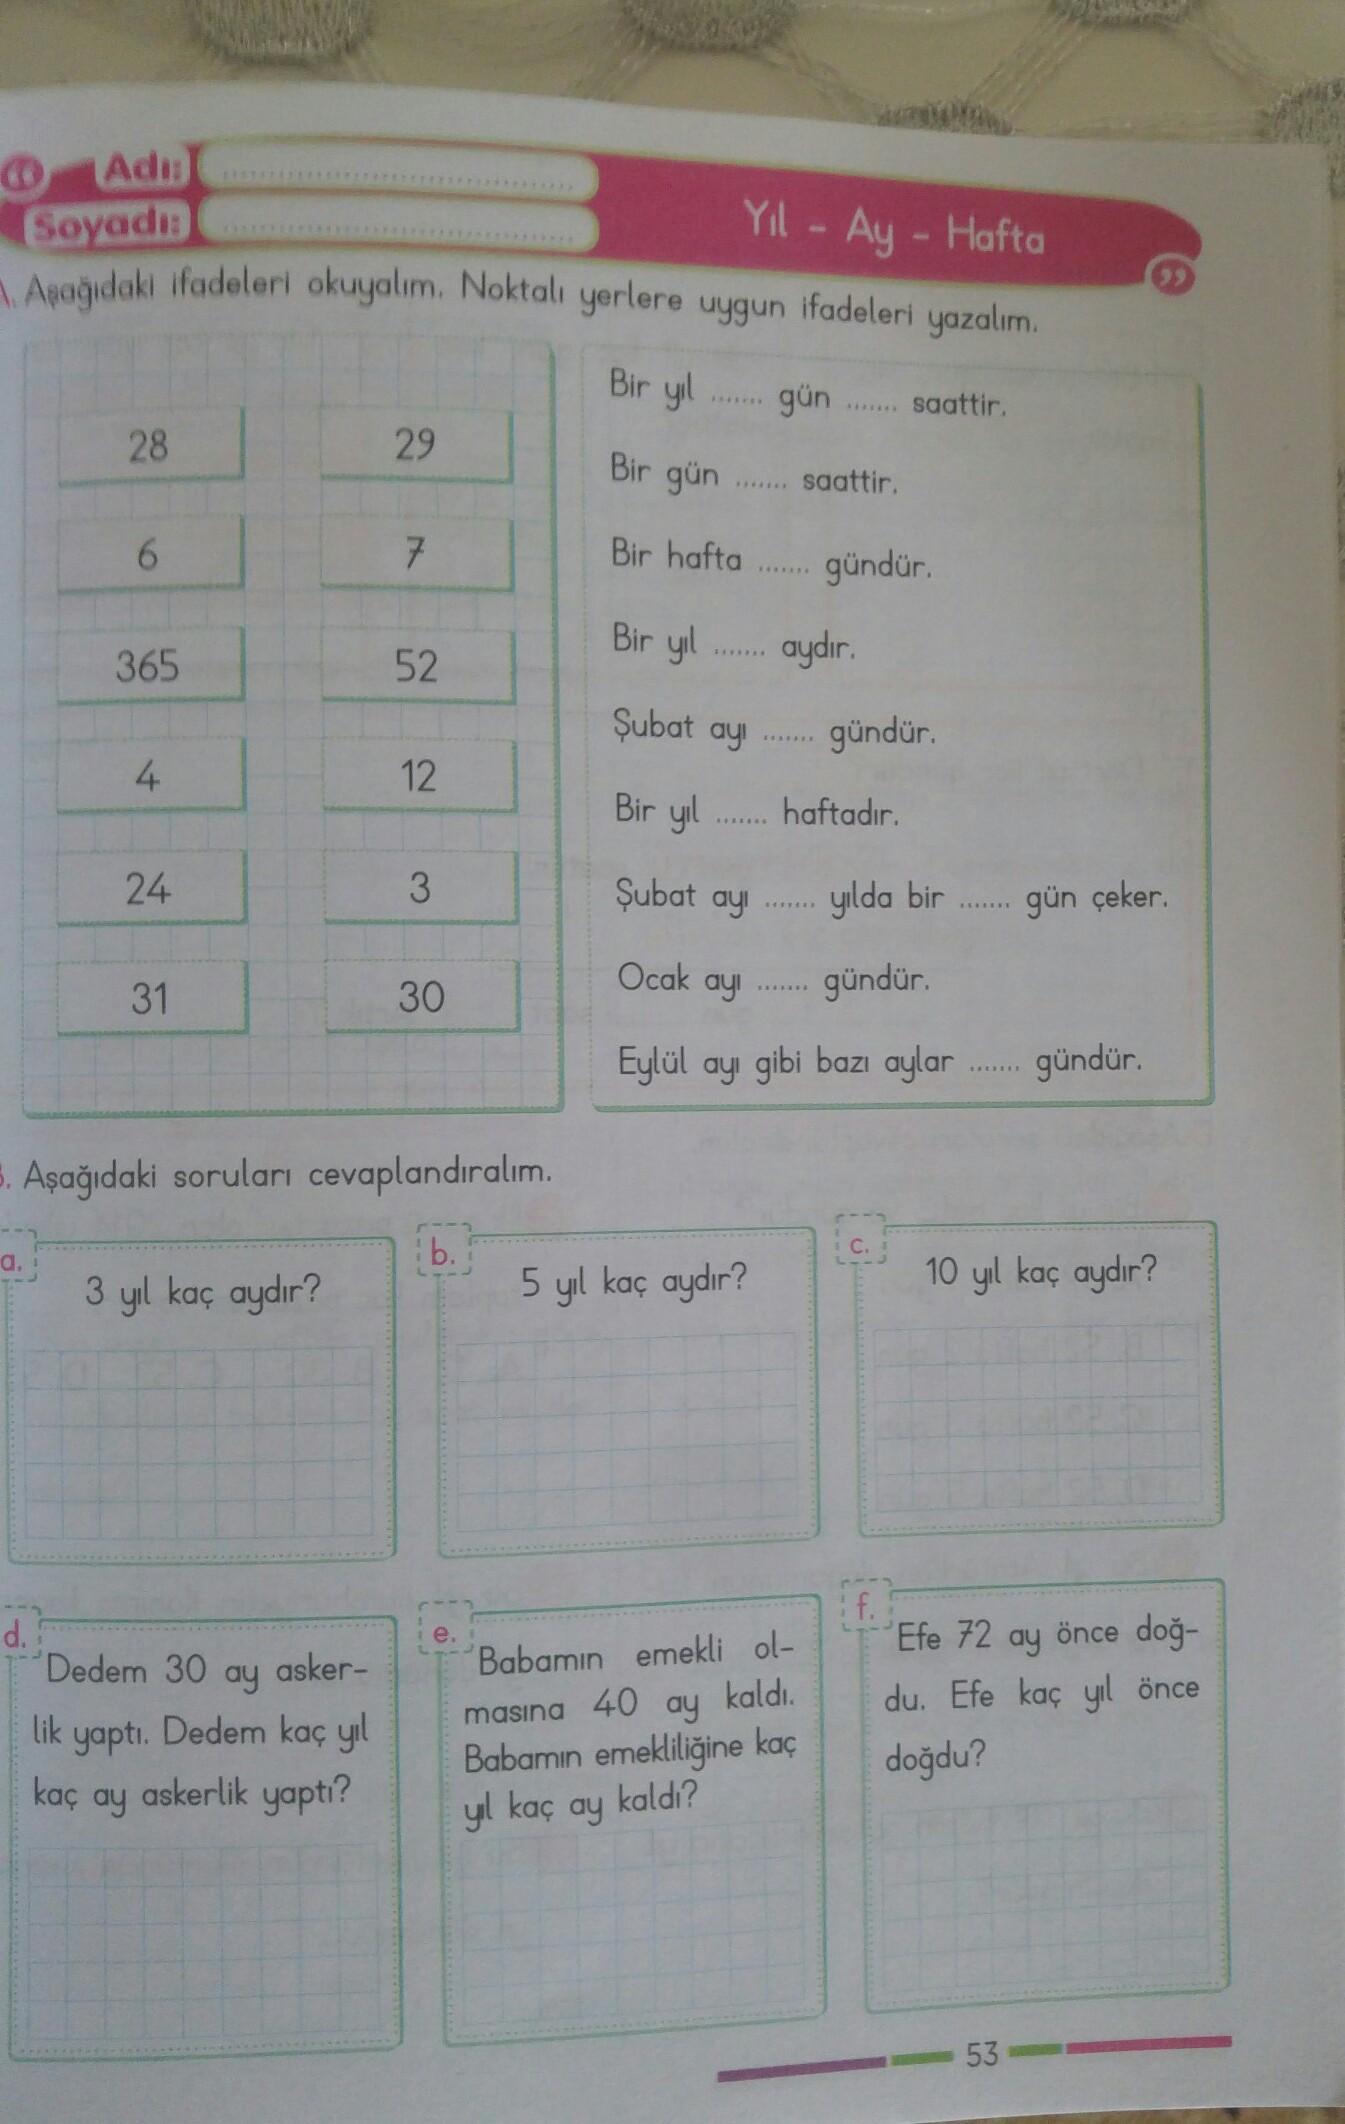 Adı:
Soyadı:
Yıl - Ay - Hafta
A. Aşağıdaki ifadeleri okuyalım. Noktalı yerlere uygun ifadeleri yazalım.
28 29
6 7
365 52
4 12
24 3
31 30
Bir yıl ....... gün ....... saattir.
Bir gün ....... saattir.
Bir hafta ....... gündür.
Bir yıl ....... aydır.
Şubat ayı ....... gündür.
Bir yıl ....... haftadır.
Şubat ayı ....... yılda bir ....... gün çeker.
Ocak ayı ....... gündür.
Eylül ayı gibi bazı aylar ....... gündür.
B. Aşağıdaki soruları cevaplandıralım.
a. 3 yıl kaç aydır?
b. 5 yıl kaç aydır?
c. 10 yıl kaç aydır?
d. Dedem 30 ay asker-
lik yaptı. Dedem kaç yıl
kaç ay askerlik yaptı?
e. Babamın emekli ol-
masına 40 ay kaldı.
Babamın emekliliğine kaç
yıl kaç ay kaldı?
f. Efe 72 ay önce doğ-
du. Efe kaç yıl önce
doğdu?
53